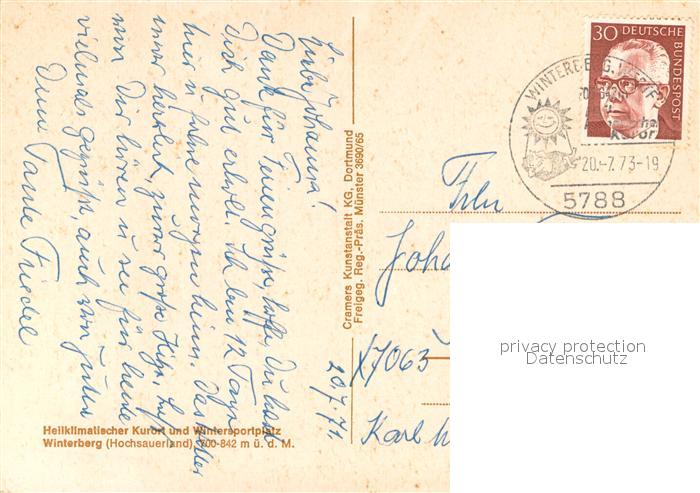 Liebe Johanna!
Dank für Feriengrüße, hoffe Du hast
Dich gut erholt. Ich bin 12 Tage
hier u. fahre morgen heim. Das Wetter
war herrlich, zuerst große Hitze.
von Dir hören u. sei für heute
vielmals gegrüßt, auch von Juten
Deine Tante Friedel
20.7.71.
Cramers Kunstanstalt KG, Dortmund
Freigeg. Reg.-Präs. Münster 3690/65
Heilklimatischer Kurort und Wintersportplatz
Winterberg (Hochsauerland), 700-842 m ü. d. M.
30 DEUTSCHE
BUNDESPOST
WINTERBERG
20.-7.73-19
5788
Frln
Joha
X7063
Karl M
privacy protection
Datenschutz